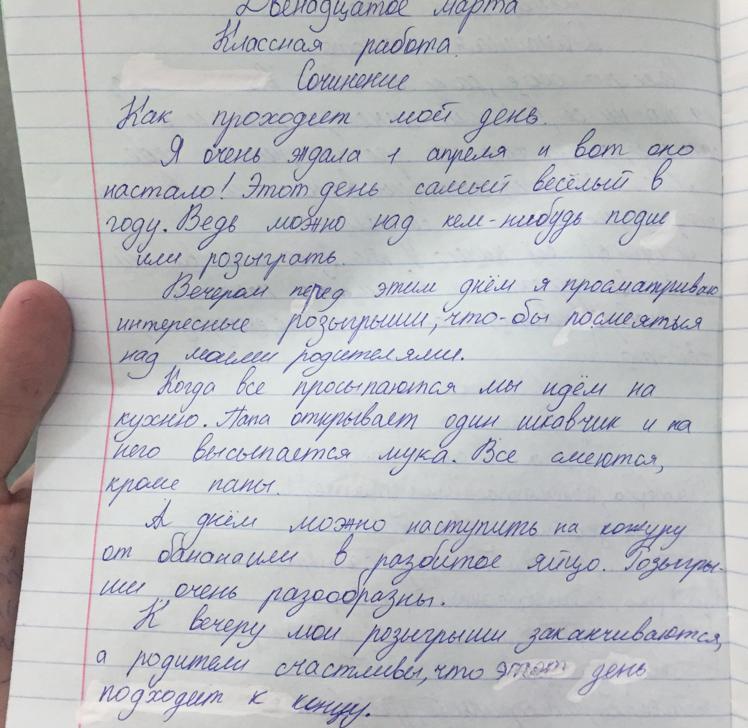 Двенадцатое марта
Классная работа.
Сочинение
Как проходит мой день.
Я очень ждала 1 апреля и вот оно
настало! Этот день самый весёлый в
году. Ведь можно над кем-нибудь подш
или розыграть.
Вечером перед этим днём я просматриваю
интересные розыгрыши, что-бы посмеяться
над моими родителями.
Когда все просыпаются мы идём на
кухню. Папа открывает один шкавчик и на
него высыпается мука. Все смеются,
кроме папы.
А днём можно наступить на кожуру
от бананаили в разбитое яйцо. Розыгры-
ши очень разообразны.
К вечеру мои розыгрыши заканчиваются,
а родители счастливы, что этот день
подходит к концу.